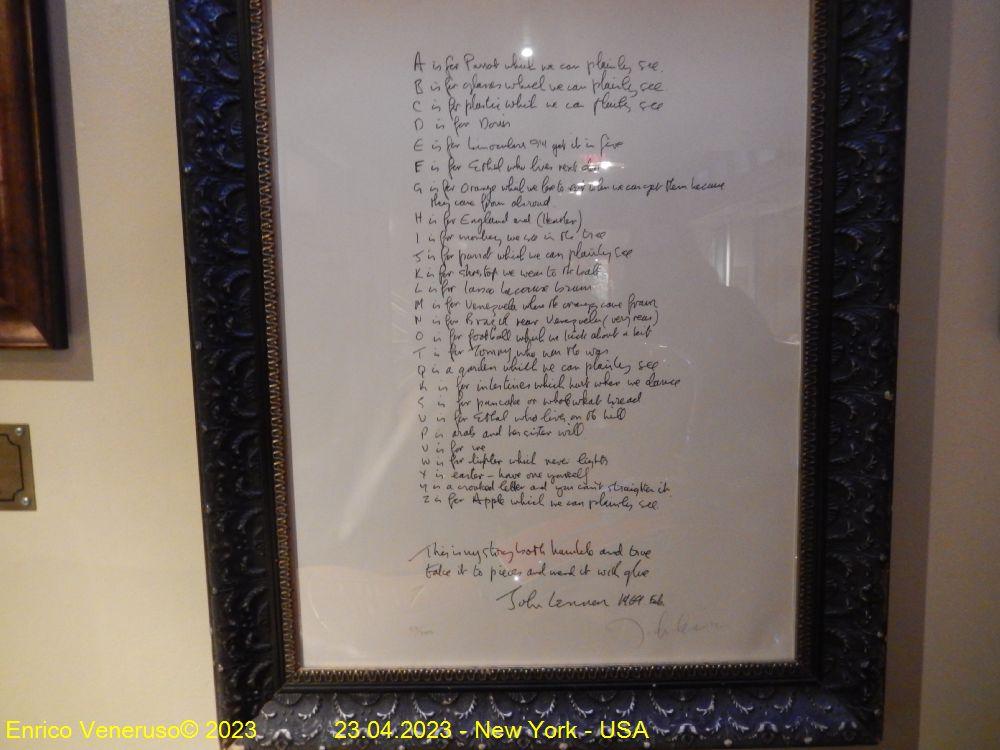 A is for Parrot which we can plainly see.
B is for glasses which we can plainly see
C is for plastic which we can plainly see
D is for Doris
E is for binoculars I'll get it in five
F is for Ethel who lives next door
G is for Orange which we love to eat when we can get them because
they come from abroad
H is for England and (Heather)
I is for monkey we see in the tree
J is for parrot which we can plainly see
K is for shoetop we wear to the ball
L is for Lasso because brown
M is for Venezuela where the oranges come from
N is for Brazil near Venezuela (very near)
O is for football which we kick about a bit
T is for Tommy who won the war
Q is a garden which we can plainly see
R is for intestines which hurt when we dance
S is for pancake or whole wheat bread
U is for Ethel who lives on the hill
P is arab and her sister will
V is for me
W is for lighter which never lights
X is easter - have one yourself
Y is a crooked letter and you can't straighten it
Z is for Apple which we can plainly see
This is my story both humble and true
take it to pieces and mend it with glue
John Lennon 1969 Feb.
Enrico Veneruso© 2023
23.04.2023 - New York - USA